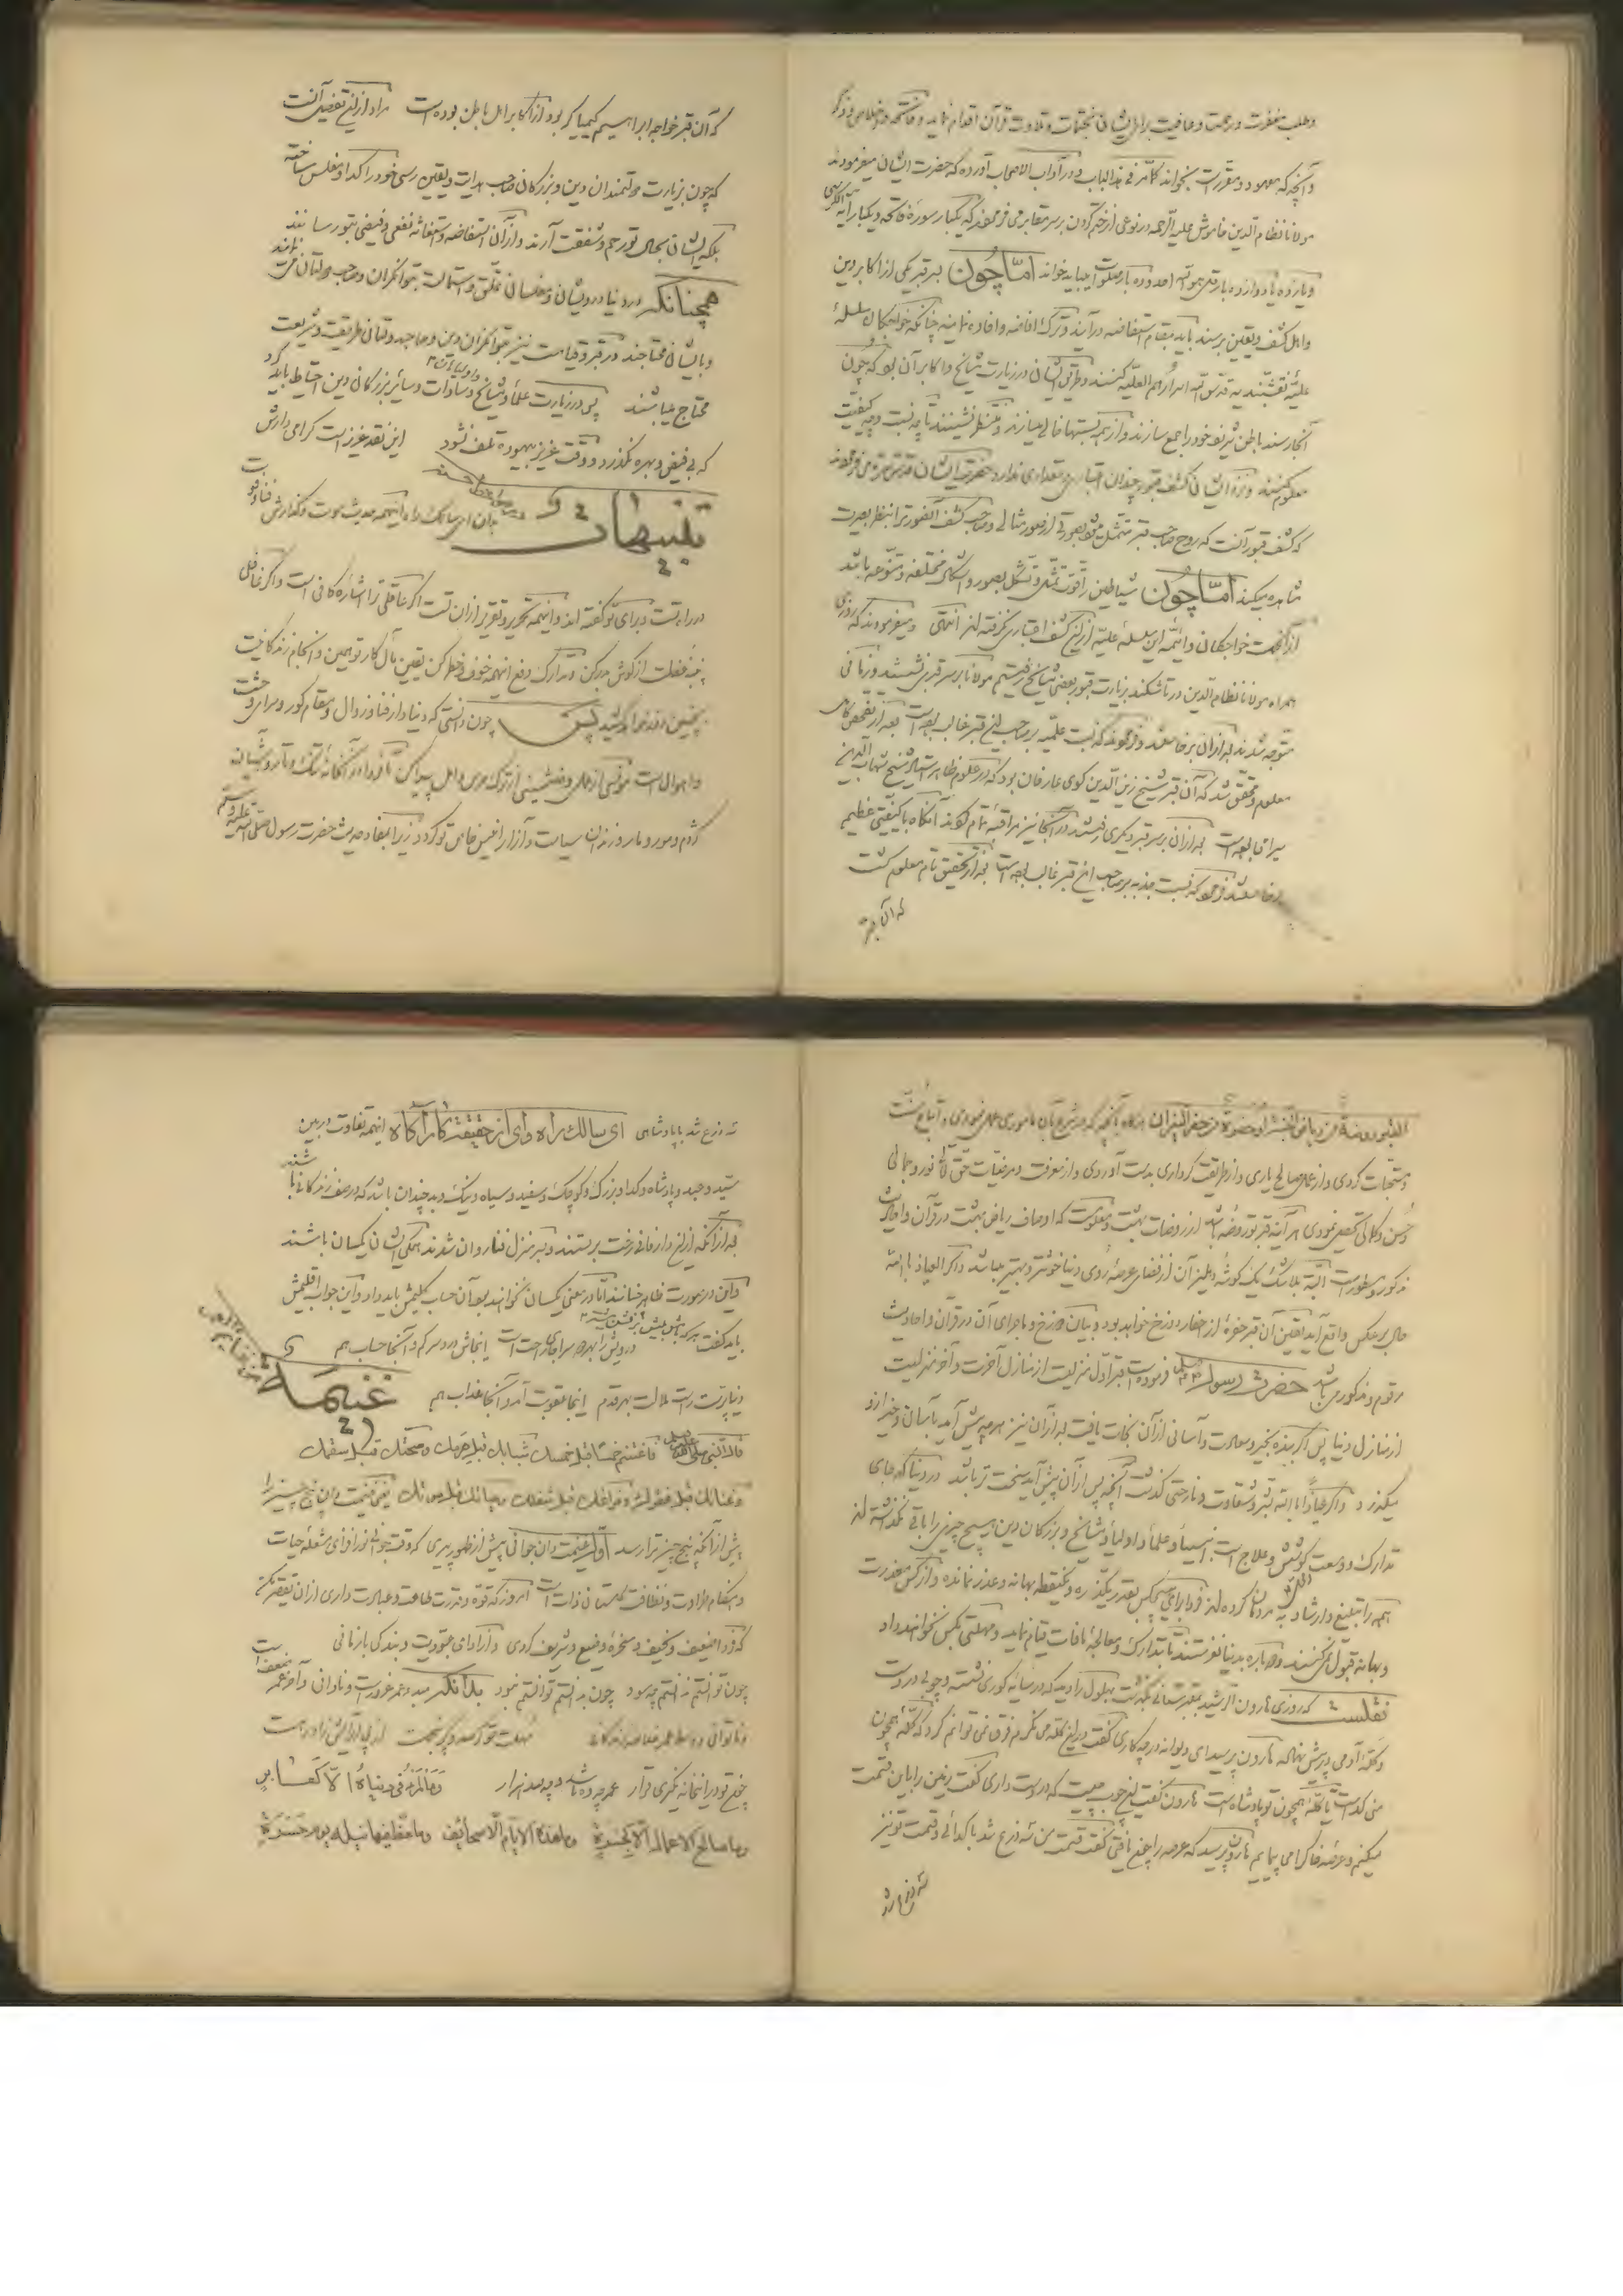 وطلب مغفرت ورحمت وعافیت برای ایشان وتلاوت قرآن اقدام نماید وفاتحه
وآنچه که معهود ومقررست بخواند کما مر فی هذا الباب ودر آداب الاصحاب آورده که حضرت ایشان میفرمودند
مولانا نظام الدین خاموش علیه الرحمه از ختم کردن بر سر مقابر می فرمودند که یکبار سورهٔ فاتحه ویکبار آیة الکرسی
ویازده یا دوازده بار قل هو الله احد وده بار صلوات میباید خواند اما چون بر قبر یکی از اکابر دین
واهل کشف ویقین برسند باید بمقام استفاضه در آیند وترک افاضه وافاده نمایند چنانکه خواجکان سلسلهٔ
علیهٔ نقشبندیه قدس الله اسرارهم العلیه کنند وطریق ایشان در زیارت مشایخ واکابر آن بود که چون
آنجا رسند باطن شریف خود را جمع سازند واز همه نسبتها خالی سازند ومنتظر نشینند تا چه نسبت وچه کیفیت
معلوم کنند ونزد ایشان کشف قبور چندان اعتبار ومقداری ندارد حضرت ایشان قدس سره می فرمودند
که کشف قبور آنست که روح صاحب قبر متمثل شود بصورتی از صور مثالی وصاحب کشف آنصورت را بنظر بصیرت
مشاهده میکند اما چون شیاطین را قوت تمثل وتشکل بصور واشکال مختلفه ومتنوعه باشد
از آنجهت خواجکان وائمهٔ این سلسلهٔ علیه از این کشف اعتباری نکرفته اند انتهی ومیفرمودند که روزی
همراه مولانا نظام الدین در تاشکند بزیارت قبور بعضی مشایخ رفتیم مولانا بر سر قبری نشستند وزمانی
متوجه شدند بعد از آن برخاستند وفرمودند که نسبت علمیه بر صاحب این قبر غالب بوده است بعد از تفحص کامل
معلوم ومحقق شد که آن قبر شیخ زین الدین کوی عارفان بود که در علوم ظاهر استاد شیخ شهاب الدین
سیرامی بوده است بعد از آن بر سر قبر دیکری رفتند در آنجا نیز مراقبه تمام کردند آنکاه با کیفیتی عظیم
برخاستند فرمودند که نسبت جذبه بر صاحب این قبر غالب بوده است بعد از تحقیق تام معلوم کشت
که آن قبر
که آن قبر خواجه ابراهیم کیمیاکر بود از اکابر اهل باطن بوده است مراد از این تفصیل آنست
که چون بزیارت دولتمندان دین وبزرکان صاحب هدایت ویقین رسی خود را کدا ومفلس ساخته
بلکه ایشان بحال تو رحم وشفقت آرند واز آن استفاضه واستفاده نفعی وفیضی بتو رسانند
همچنانکه در دنیا درویشان ومفلسان تملق واستمالت بتوانکران وصاحب دولتان
وبایشان محتاجند در قبر وقیامت نیز بتوانکران دین وصاحبدولتان طریقت وشریعت
محتاج میباشند پس در زیارت علما ومشایخ واولیاء الله وسادات وسائر بزرکان دین احتیاط باید کرد
که بی فیض وبهره نکذرد ووقت عزیز بیهوده تلف نشود این نقد عزیز است کرامی دارش
تنبیهات بدان ای سالک راه اینهمه حدیث موت وکذارش فنا وفوت
در راه تست وبرای تو کفته اند واینهمه تحریر وتقریر از آن تست اکر عاقلی ترا اشاره کافی است واکر غافلی
پنبهٔ غفلت از کوش بدر کن وتدارک دفع اینهمه خوف وخطر کن یقین مآل کار تو همین وانجام زندکانیت
چنین خواهد کشید پس چون دانستی که دنیا دار فنا وزوال ومقام کور وسرای وحشت
واهوال است مونسی از عمل وهمنشینی از ترک حرص وامل پیدا کن تا فردا در آنخانهٔ تنک وتار وآشیان
کژدم ومور ومار در زندان سیاست وآزار انیس خاص تو کردد زیرا بمفاد حدیث حضرت رسول صلی الله علیه وسلم
القبر روضة من ریاض الجنة او حفرة من حفر النیران هرکاه بآنچه که در شرع بآن ماموری عمل نمودی واتباع سنت
ومستحبات کردی واز عمل صالح یاری واز طریقت کرداری بدست آوردی واز معرفت ومرضیات حق تعالی نور وجمالی
وحسن وکمالی تحصیل نمودی هر آینه قبر تو روضه باشد از روضات بهشت ومعلومست که اوصاف ریاض بهشت در قرآن واحادیث
مذکور ومسطورست البته بلا شک یک کوشهٔ دهلیز آن از فضای عرصهٔ روی دنیا خوشتر وبهتر میباشد واکر العیاذ بالله
حال برعکس واقع آید یقین آن قبر حفرهٔ از حفار دوزخ خواهد بود وبیان دوزخ وماجرای آن در قرآن واحادیث
مرقوم ومذکور می باشد حضرت رسول صلی الله علیه وسلم فرموده است قبر اول منزلیست از منازل آخرت وآخر منزلیست
از منازل دنیا پس اکر بنده بخیر وسعادت وآسانی از آن نجات یافت بعد از آن نیز هرچه پیش آید بآسان وخیر از او
میکذرد واکر عیاذا بالله بشر وشقاوت وناراحتی کذشت آنچه پس از آن پیش آید سخت تر باشد در دنیا که جای
تدارک ووسعت کوشش وعلاج است انبیا وعلما واولیا ومشایخ وبزرکان دین هیچ چیزی را باقی نکذاشته اند
همه را تبلیغ وارشاد به مردمان کرده اند فردا برای هیچکس بقدر یکذره ویکنقطه بهانه وعذر نمانده واز کس معذرت
وبهانه قبول نکنند ودوباره بدنیا نفرستند تا بتدارک ومعالجهٔ مافات قیام نماید ومهلتی بکس نخواهند داد
نقلست که روزی هارون الرشید بقبرستانی بکذشت بهلول را دید که در میانهٔ کوری نشسته وچوبی در دست
وکلهٔ آدمی در پیش نهاده هارون پرسید ای دیوانه در چه کاری کفت در این کله می نکرم فرق نمی توانم کرد که کلهٔ همچون
منی کداست یا کلهٔ همچون تو پادشاه است هارون کفت این چوب چیست که در دست داری کفت زمین را باین قسمت
میکنم وعرصهٔ خاک را می پیمایم هارون پرسید که عرصه را چون یافتی کفت قسمت من سه ذرع شد با کدائی وقسمت تو نیز
سه ذرع شد با پادشاهی ای سالک راه وای از حقیقت کار آکاه اینهمه تفاوت در بین
سید وعبد وپادشاه وکدا وبزرک وکوچک وسفید وسیاه ونیک وبد چندان باشد که در صف زندکانی باشند
بعد از آنکه از این دار فانی رخت بر بستند وبسر منزل فنا روان شدند همکی ایشان یکسان باشند
واین در صورت ظاهر چنانند اما در معنی یکسان نخواهند بود آن حساب کلیمش باید داد واین جواب اقلیمش
باید کفت هرکه بامش بیش برفش بیشتر درویش را بهر دو سرا جای راحت است اینجاش دردسر کم وآنجا حساب هم
دنیاپرست راست ملالت بهر قدم اینجا عقوبت آمد وآنجا عذاب هم
غنیمة قال النبی صلی الله علیه وسلم فاغتنم خمسا قبل خمسک شبابک قبل هرمک وصحتک قبل سقمک
وغنائک قبل فقرک وفراغک قبل شغلک وحیاتک قبل موتک یعنی غنیمت دان پنج چیز را
پیش از آنکه پنج چیز ترا رسد اول غنیمت دان جوانی پیش از ظهور پیری که وقت جوانی نور افزای مشعلهٔ حیات
وهنکام طراوت ونظافت کلستان ذات است امروز که قوه وقدرت طاعت وعبادت داری از آن تقصیر مکن
که فردا ضعیف ونحیف ومسخرهٔ وضیع وشریف کردی واز ادای عبودیت وبندکی باز مانی
چون توانستم ندانستم چه سود چون بدانستم توانستم نبود بدانکه
مهلت تو از صد وپنج بیست
چرخ تو در این خانه نکیری قرار عمر چه ده باشد وچه صد هزار
وما صالح الاعمال الا کخدرة وما هذه الایام الا صحائف